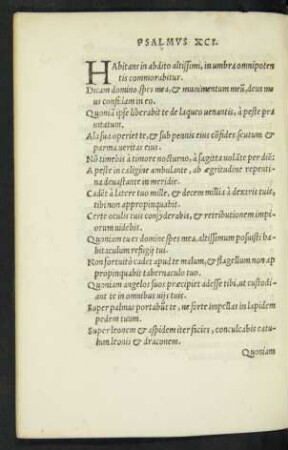 PSALMVS XCI.
HAbitans in abdito altissimi, in umbra omnipoten
tis commorabitur.
Dicam domino, spes mea, & munimentum meũ, deus me
us confidam in eo.
Quoniã ipse liberabit te de laqueo uenantis, à peste pra
uitatum.
Ala sua operiet te, & sub pennis eius cõfides, scutum &
parma ueritas eius.
Nõ timebis à timore nocturno, à sagitta uolãte per diẽ:
A peste in caligine ambulante, ab ægritudine repenti
na deuastante in meridie.
Cadẽt à latere tuo mille, & decem millia à dextris tuis,
tibi non appropinquabit.
Certe oculis tuis considerabis, & retributionem impi
orum uidebis.
Quoniam tu es domine spes mea, altissimum posuisti ha
bitaculum refugij tui.
Non fortuitò cadet apud te malum, & flagellum non ap
propinquabit tabernaculo tuo.
Quoniam angelos suos præcipiet adesse tibi, ut custodi
ant te in omnibus uijs tuis.
Super palmas portabũt te, ne forte impellas in lapidem
pedem tuum.
Super leonem & aspidem iter facies, conculcabis catu
lum leonis & draconem.
Quoniam